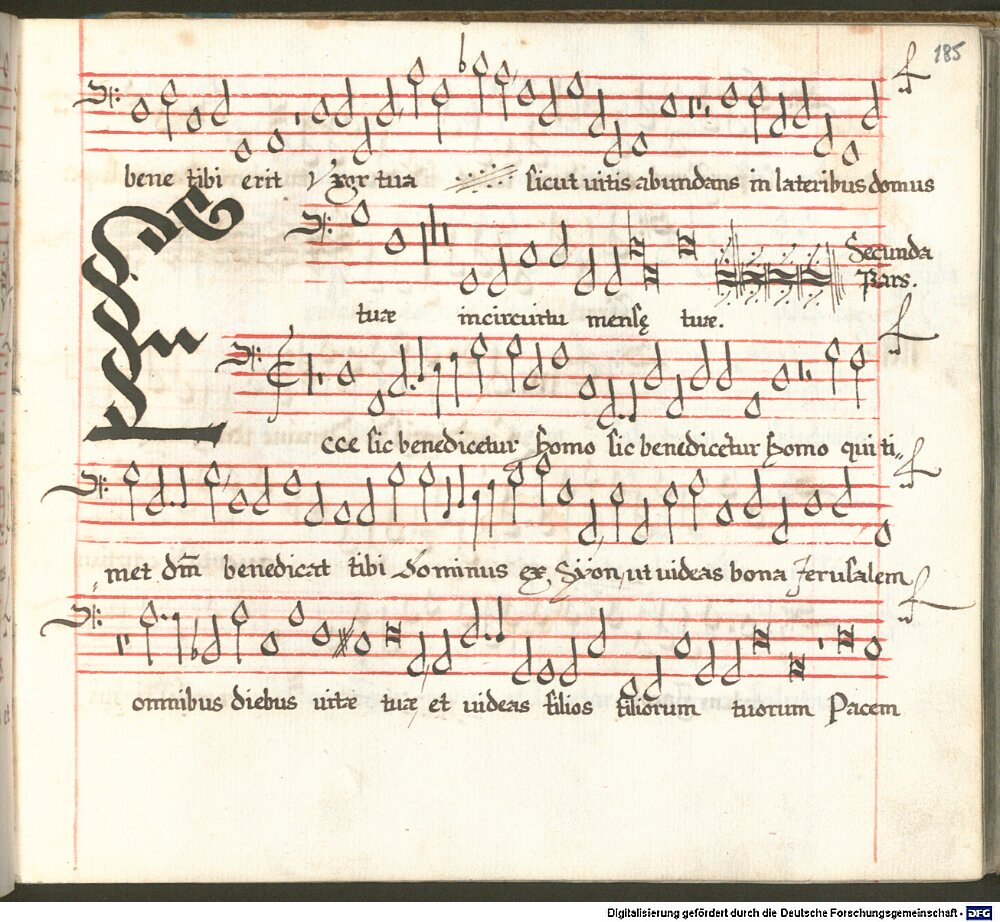 185
bene tibi erit Vxor tua sicut uitis abundans in lateribus domus
tuæ in circuitu mensę tuæ. Secunda Pars.
Ecce sic benedicetur homo sic benedicetur homo qui ti„
„met dm̄ benedicat tibi Dominus ex Syon, ut uideas bona Jerusalem
omnibus diebus uitæ tuæ et uideas filios filiorum tuorum Pacem
Digitalisierung gefördert durch die Deutsche Forschungsgemeinschaft - DFG